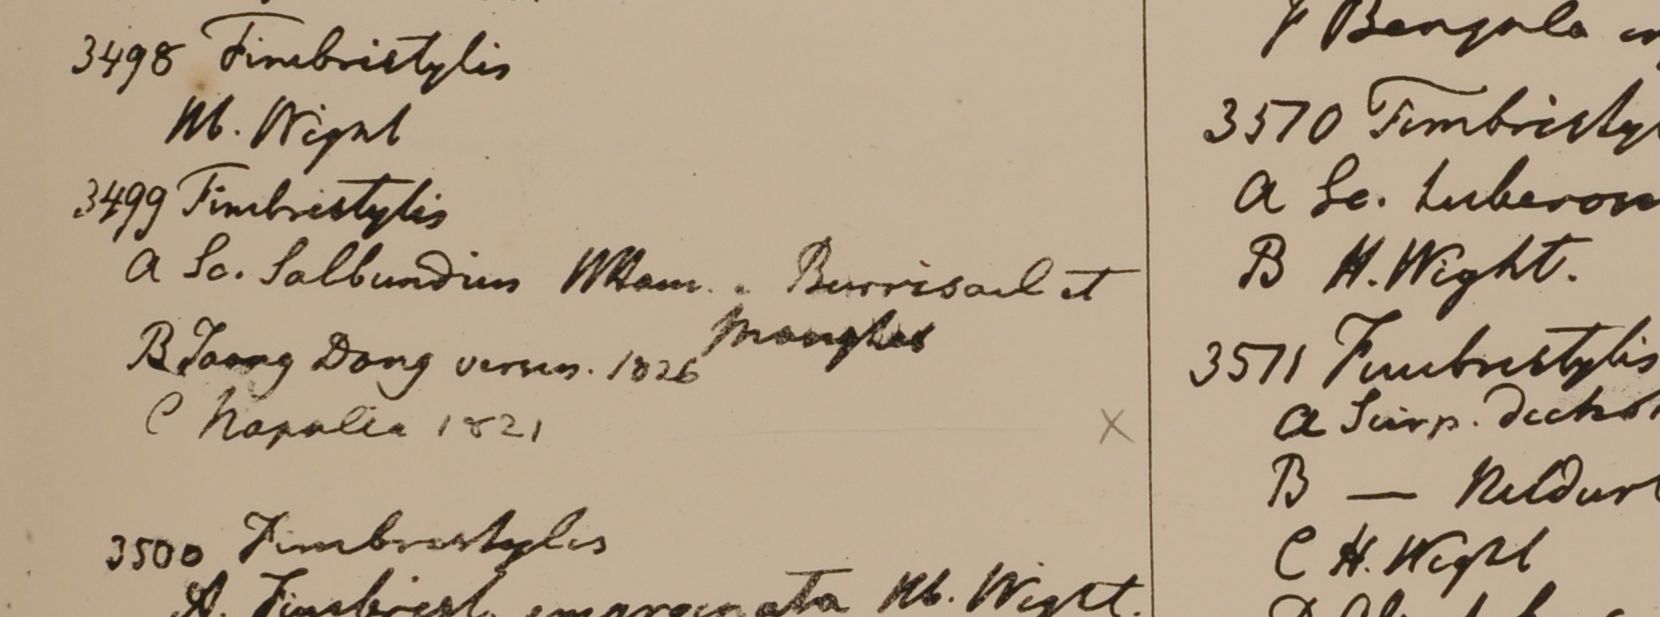 3498 Fimbristylis
Hb. Wight
3499 Fimbristylis
a Sc. Salbundius WHam. Burrisaul et
Monghes
B Toong Dong versus. 1826
C Napalia 1821
X
3500 Fimbristylis
A. Fimbrist. emarginata Hb. Wight.
Bengala
3570 Fimbristy
a Sc. tuberos
B H. Wight.
3571 Fimbristylis
a Scirp. dicho
B —
C H. Wight